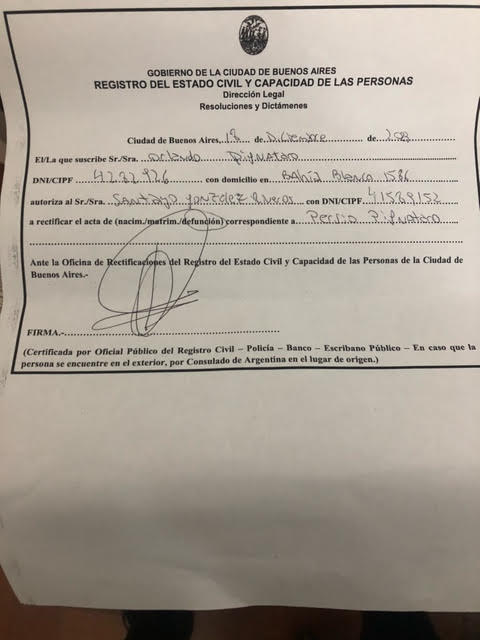 GOBIERNO DE LA CIUDAD DE BUENOS AIRES
REGISTRO DEL ESTADO CIVIL Y CAPACIDAD DE LAS PERSONAS
Dirección Legal
Resoluciones y Dictámenes
Ciudad de Buenos Aires, 18 de Diciembre de
El/La que suscribe Sr./Sra. Orlando Pignataro
DNI/CIPF 4282926 con domicilio en Bahía Blanca 1586
autoriza al Sr./Sra. Santiago González con DNI/CIPF 41569152
a rectificar el acta de (nacim./matrim./defunción) correspondiente a Pignataro
Ante la Oficina de Rectificaciones del Registro del Estado Civil y Capacidad de las Personas de la Ciudad de
Buenos Aires.-
FIRMA.-
(Certificada por Oficial Público del Registro Civil – Policía – Banco – Escribano Público – En caso que la
persona se encuentre en el exterior, por Consulado de Argentina en el lugar de origen.)